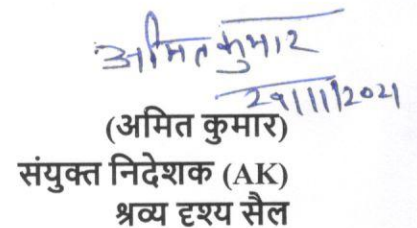 अमित कुमार
29/11/2021
(अमित कुमार)
संयुक्त निदेशक (AK)
श्रव्य दृश्य सैल